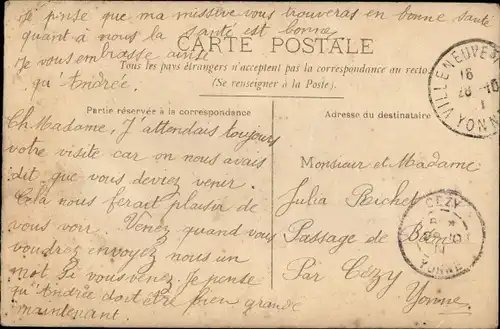 Je pense que ma missive vous trouveras en bonne santé
quant à nous la santé est bonne
Je vous embrasse ainsi
qu'Andrée.
CARTE POSTALE
Tous les pays étrangers n'acceptent pas la correspondance au recto
(Se renseigner à la Poste).
Partie réservée à la correspondance
Ch Madame, J'attendais toujours
votre visite car on nous avais
dit que vous deviez venir.
Celà nous ferait plaisir de
vous voir. Venez quand vous
voudrez envoyez nous un
mot Si vous venez. Je pense
qu'Andrée doit être bien grande
maintenant.
Adresse du destinataire
Monsieur et Madame
Julia Richet
Passage de
Par Cézy
Yonne
VILLENEUVE
16
YONNE
CEZY
YONNE